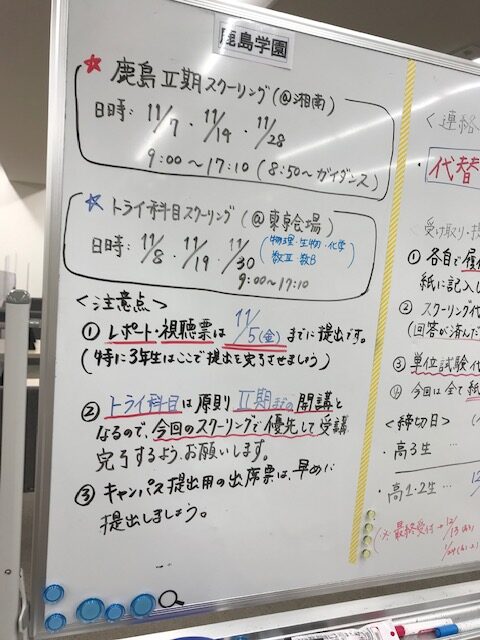 鹿島学園
☆ 鹿島Ⅱ期スクーリング(@湘南)
日時: 11/7・11/14・11/28
9:00〜17:10 (8:50〜ガイダンス)
☆ トライ科目スクーリング(@東京会場)
日時: 11/8・11/19・11/30
(物理・生物・化学
数Ⅱ 数B)
9:00〜17:10
<注意点>
① レポート・視聴票は 11/5(金)までに提出です。
(特に3年生はここで提出を完了させましょう)
② トライ科目は原則Ⅱ期までの開講と
なるので、今回のスクーリングで優先して受講
完了するよう、お願いします。
③ キャンパス提出用の出席票は、早めに
提出しましょう。
<連絡
・代替
受け取り・提
① 各自で履
紙に記入し
② スクーリング代
(回答が済んだ
③ 単位試験代
④ 今回は全て紙
<締切日>
・高3生 …
・高1・2生 …